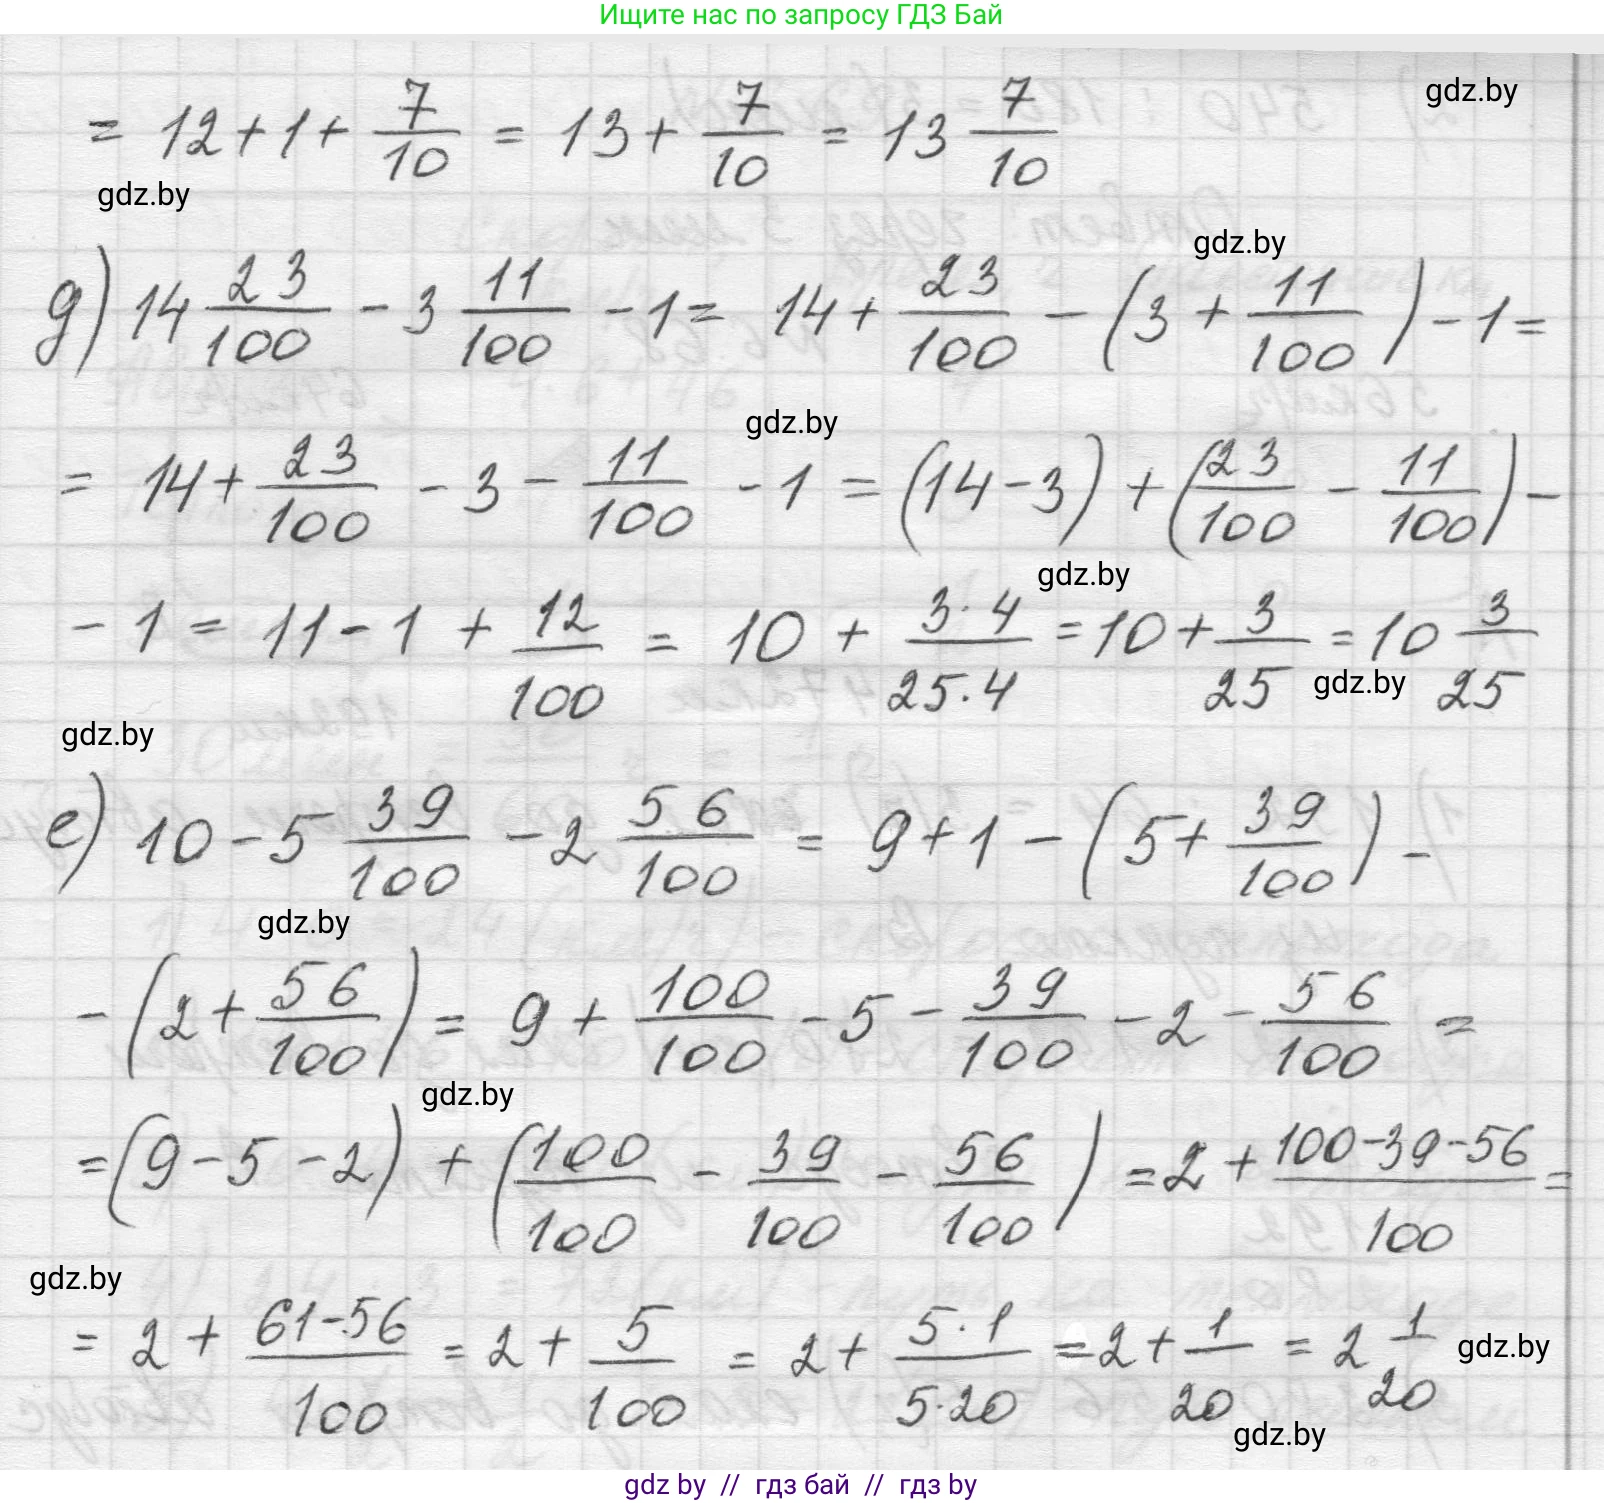 Ищите нас по запросу ГДЗ Бай
gdz.by
= 12 + 1 + 7/10 = 13 + 7/10 = 13 7/10
gdz.by
gdz.by
д) 14 23/100 - 3 11/100 - 1 = 14 + 23/100 - (3 + 11/100) - 1 =
gdz.by
= 14 + 23/100 - 3 - 11/100 - 1 = (14 - 3) + (23/100 - 11/100) -
gdz.by
- 1 = 11 - 1 + 12/100 = 10 + 3·4/25·4 = 10 + 3/25 = 10 3/25
gdz.by
gdz.by
е) 10 - 5 39/100 - 2 56/100 = 9 + 1 - (5 + 39/100) -
gdz.by
- (2 + 56/100) = 9 + 100/100 - 5 - 39/100 - 2 - 56/100 =
gdz.by
= (9 - 5 - 2) + (100/100 - 39/100 - 56/100) = 2 + 100-39-56/100 =
gdz.by
= 2 + 61-56/100 = 2 + 5/100 = 2 + 5·1/5·20 = 2 + 1/20 = 2 1/20
gdz.by
gdz.by
gdz by // гдз бай // гдз by